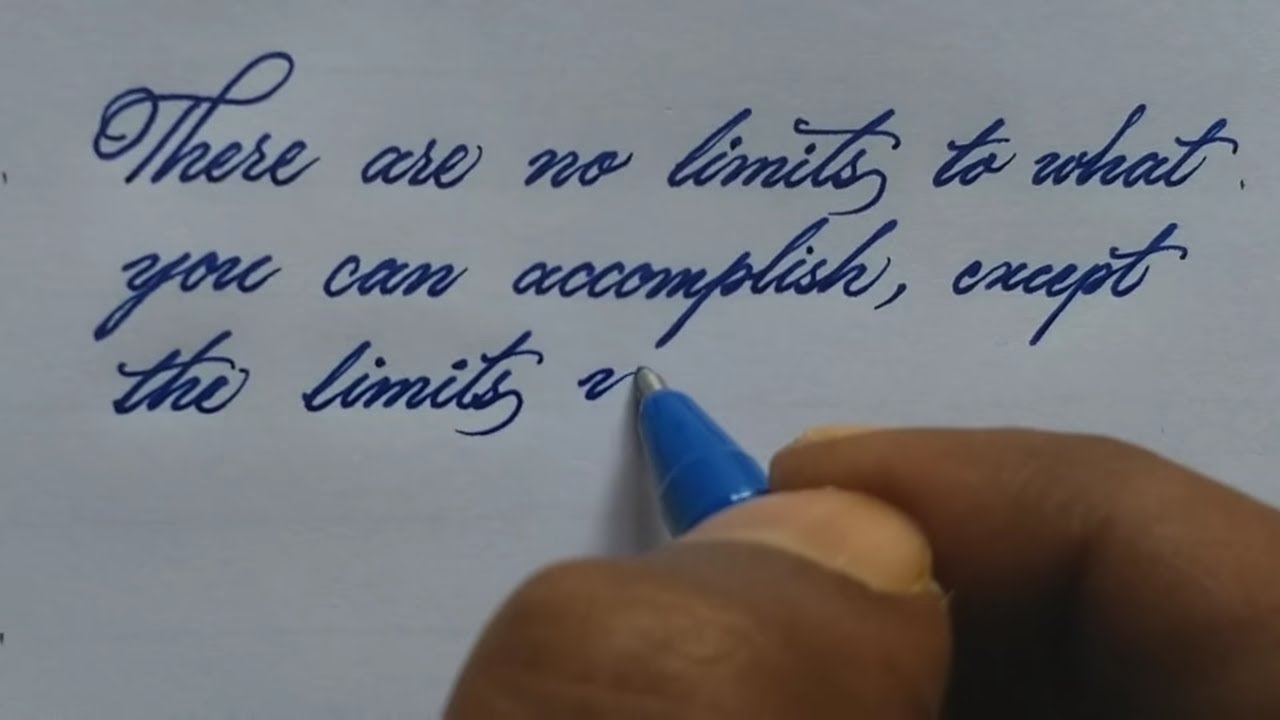 There are no limits to what
you can accomplish, except
the limits